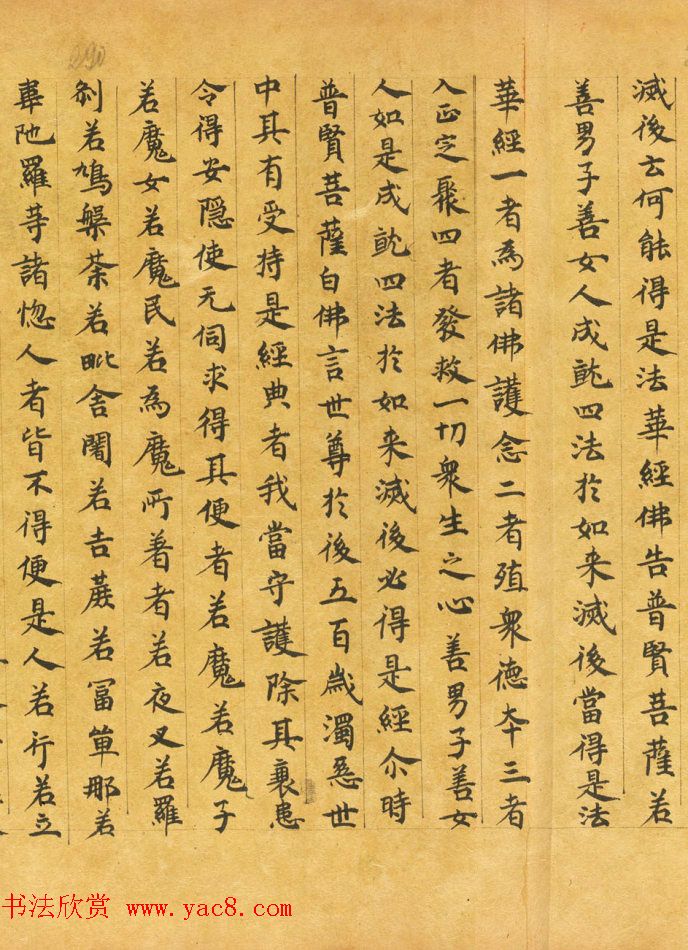 滅後云何能得是法華經佛告普賢菩薩若
善男子善女人成就四法於如来滅後當得是法
華經一者為諸佛護念二者殖衆德夲三者
入正定聚四者發救一切衆生之心善男子善女
人如是成就四法於如来滅後必得是經尒時
普賢菩薩白佛言世尊於後五百歲濁惡世
中其有受持是經典者我當守護除其衰患
令得安隱使无伺求得其便者若魔若魔子
若魔女若魔民若為魔所著者若夜叉若羅
刹若鳩槃荼若毗舍闍若吉蔗若冨單那若
韋陁羅等諸惱人者皆不得便是人若行若立
书法欣赏 www.yac8.com